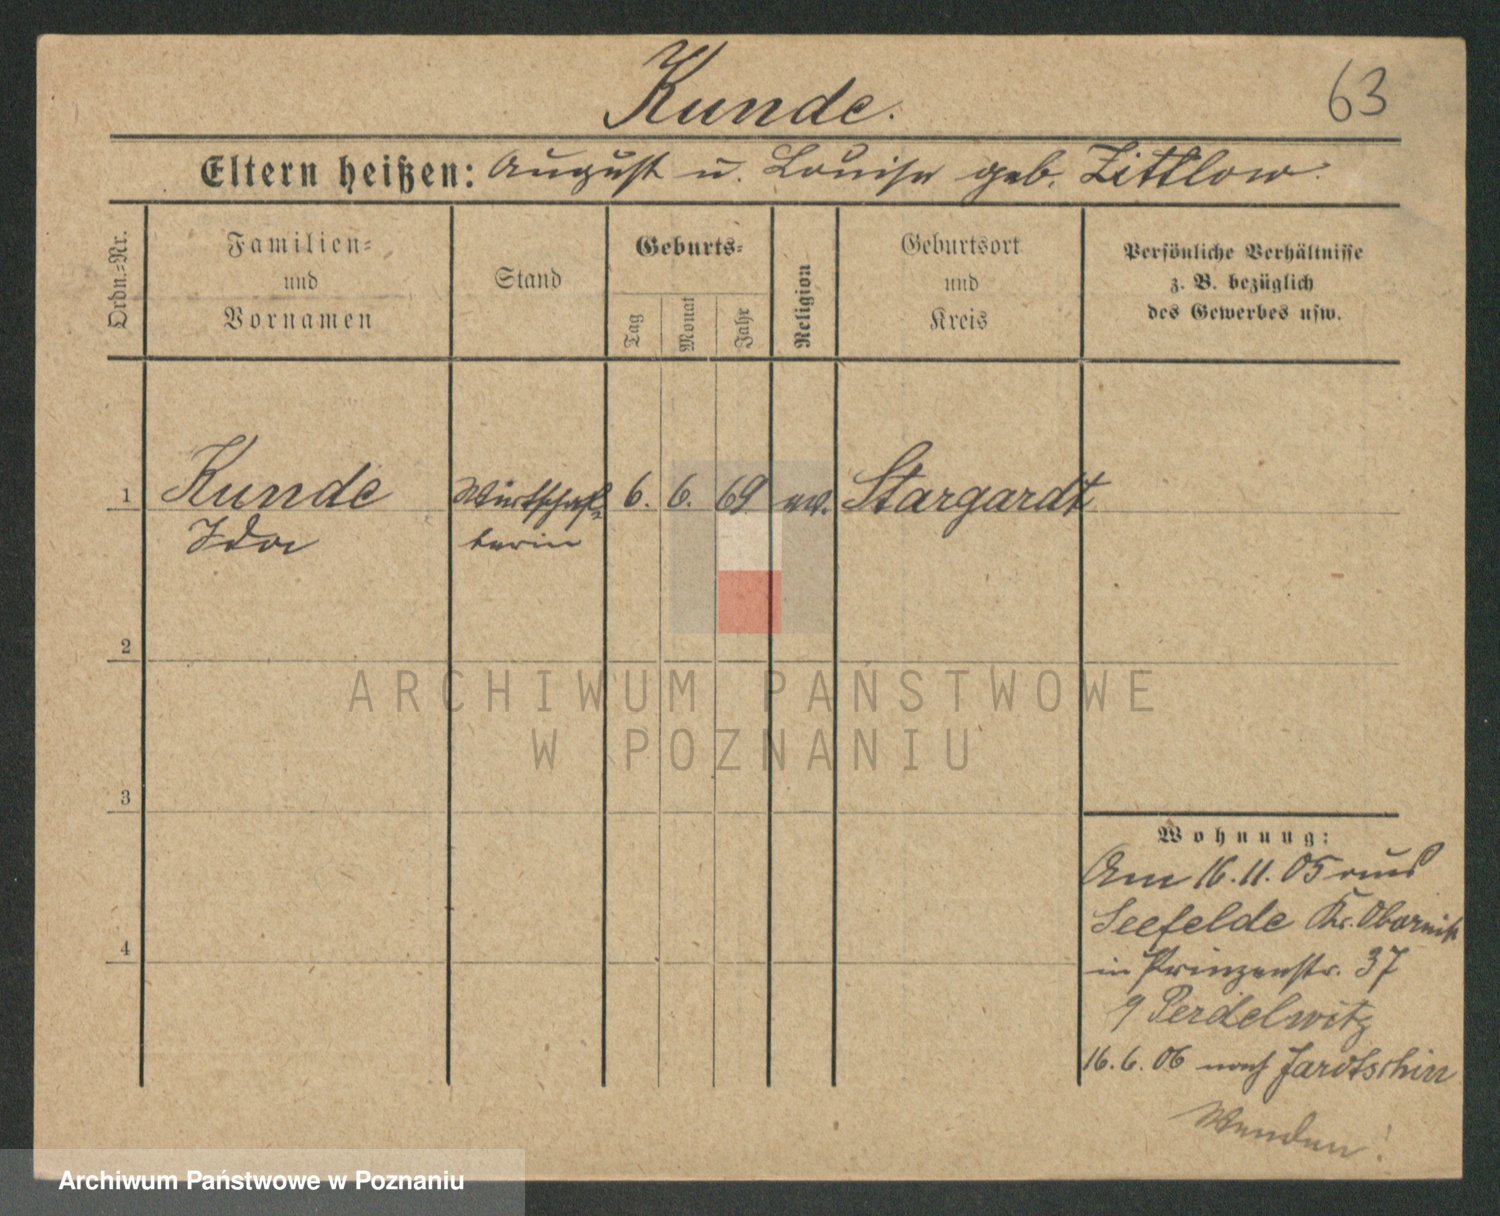 Kunde.
63
Eltern heißen: August u. Louise geb. Zittlow.
Ordn.=Nr.
Familien=
und
Vornamen
Stand
Geburts=
Tag
Monat
Jahr
Religion
Geburtsort
und
Kreis
Persönliche Verhältnisse
z. B. bezüglich
des Gewerbes usw.
1 Kunde Wirtschaf= 6. 6. 69 ev. Stargardt
Ida terin
2
3
4
Wohnung:
Am 16.11.05 aus
Seefelde Kr. Obornik
in Prinzenstr. 37
Perdelwitz
16.6.06 nach Jarotschin
Wenden!
ARCHIWUM PAŃSTWOWE
W POZNANIU
Archiwum Państwowe w Poznaniu